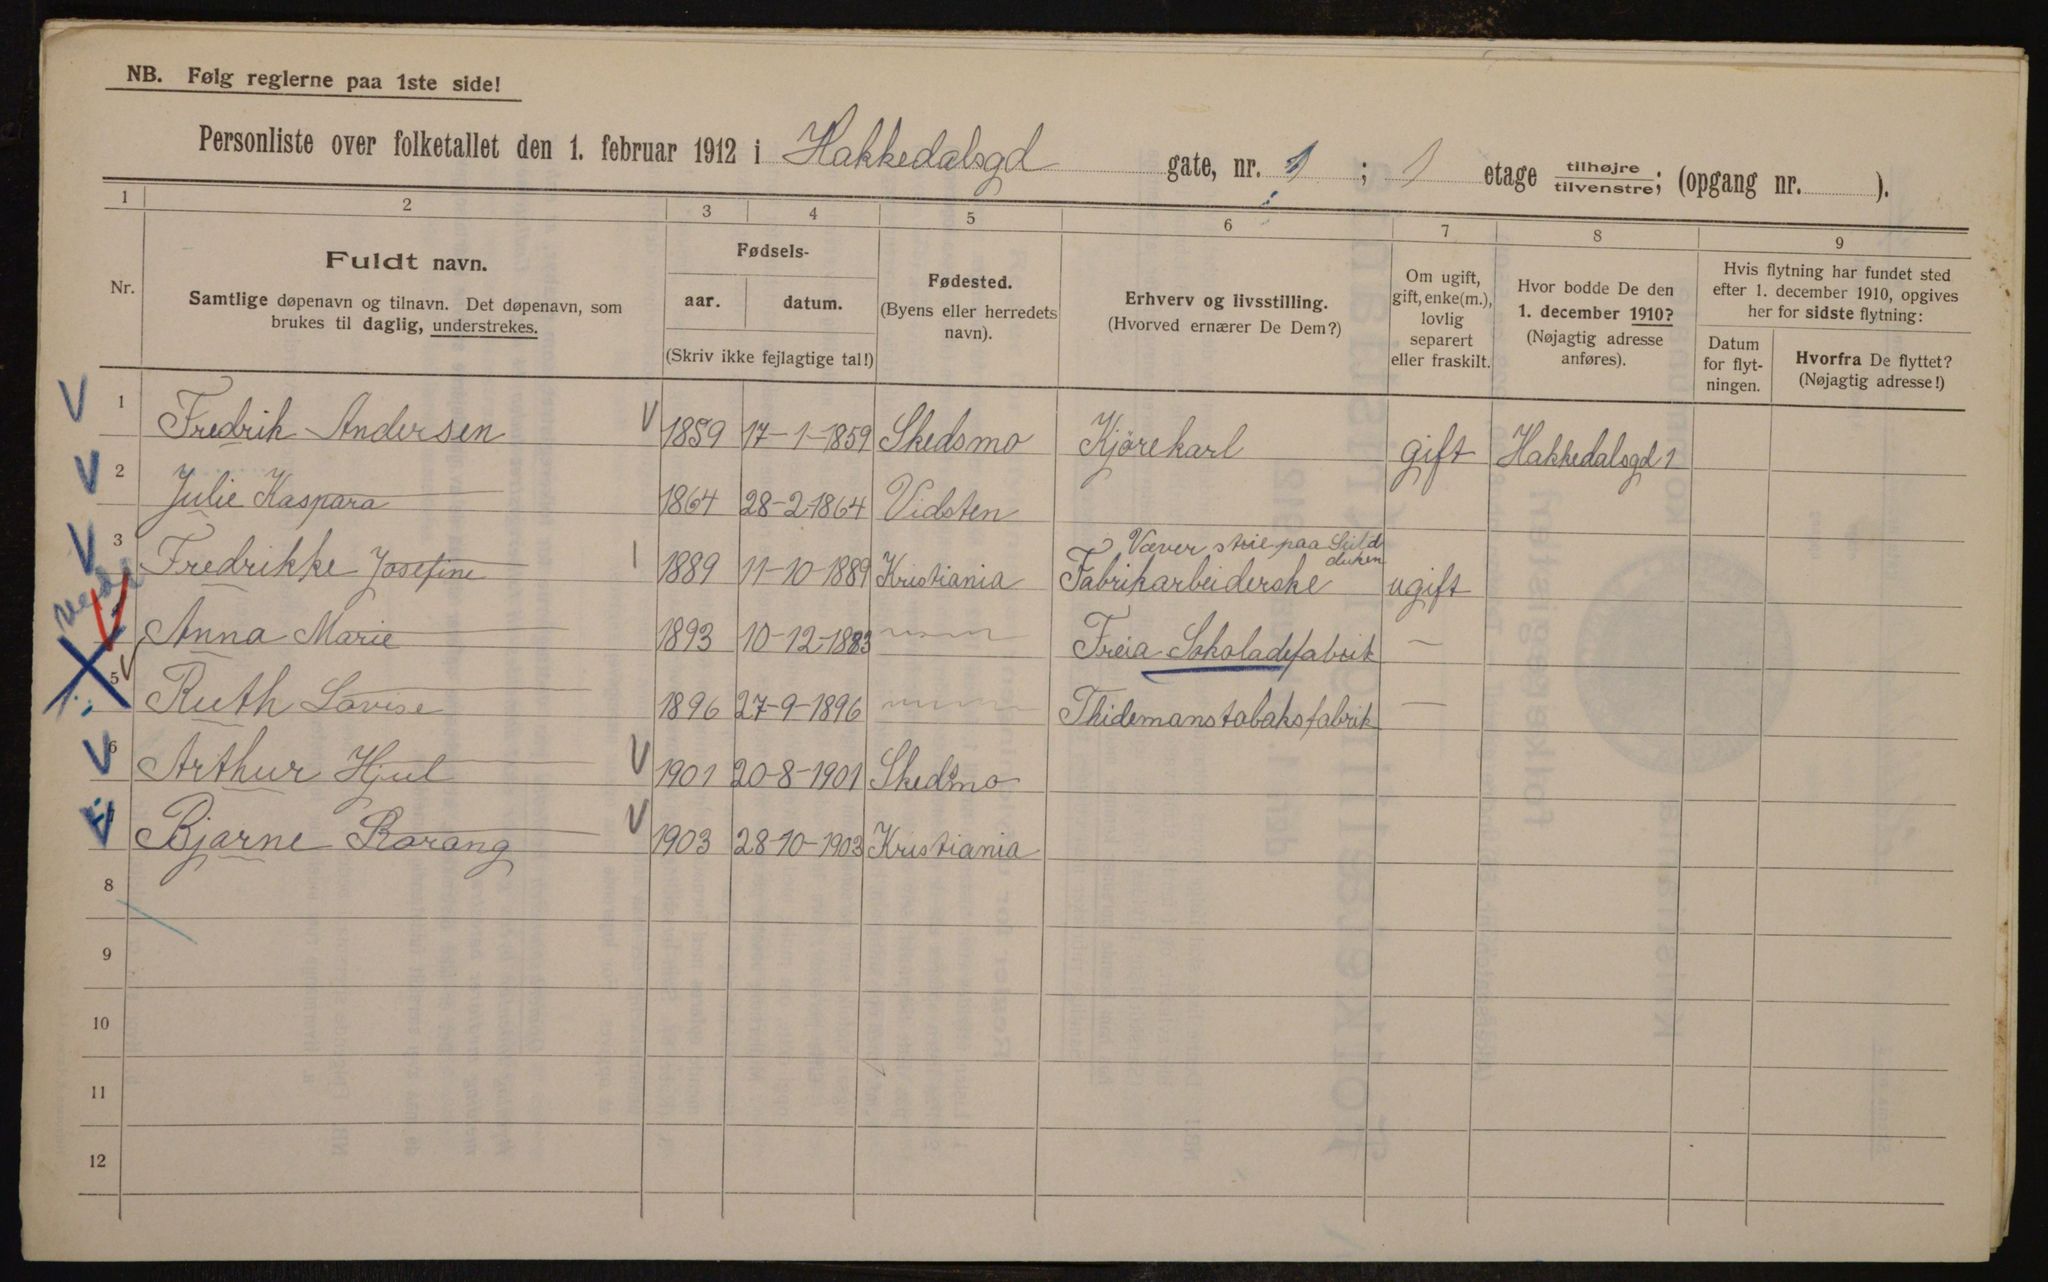 NB. Følg reglerne paa 1ste side!
Personliste over folketallet den 1. februar 1912 i Hakkedalsgd gate, nr. 1 ; 1 etage tilhøjre/tilvenstre; (opgang nr. ).
1 2 3 4 5 6 7 8 9
Nr.
Fuldt navn.
Samtlige døpenavn og tilnavn. Det døpenavn, som
brukes til daglig, understrekes.
Fødsels-
aar. datum.
(Skriv ikke fejlagtige tal!)
Fødested.
(Byens eller herredets
navn).
Erhverv og livsstilling.
(Hvorved ernærer De Dem?)
Om ugift,
gift, enke(m.),
lovlig
separert
eller fraskilt.
Hvor bodde De den
1. december 1910?
(Nøjagtig adresse
anføres).
Hvis flytning har fundet sted
efter 1. december 1910, opgives
her for sidste flytning:
Datum
for flyt-
ningen.
Hvorfra De flyttet?
(Nøjagtig adresse!)
1 Fredrik Andersen 1859 17-1-1859 Skedsmo Kjørekarl gift Hakkedalsgd 1
2 Julie Kaspara 1864 28-2-1864 Vidsten
Væver paa Seild
duken
3 Fredrikke Josefine 1889 11-10-1889 Kristiania Fabrikarbeiderske ugift
Anna Marie 1893 10-12-1883 —"— Freia Sokoladefabrik —
5 Ruth Lovise 1896 27-9-1896 —"— Thidemanstobaksfabrik —
6 Arthur Hjul 1901 20-8-1901 Skedsmo
Bjarne Rorang 1903 28-10-1903 Kristiania
8
9
10
11
12